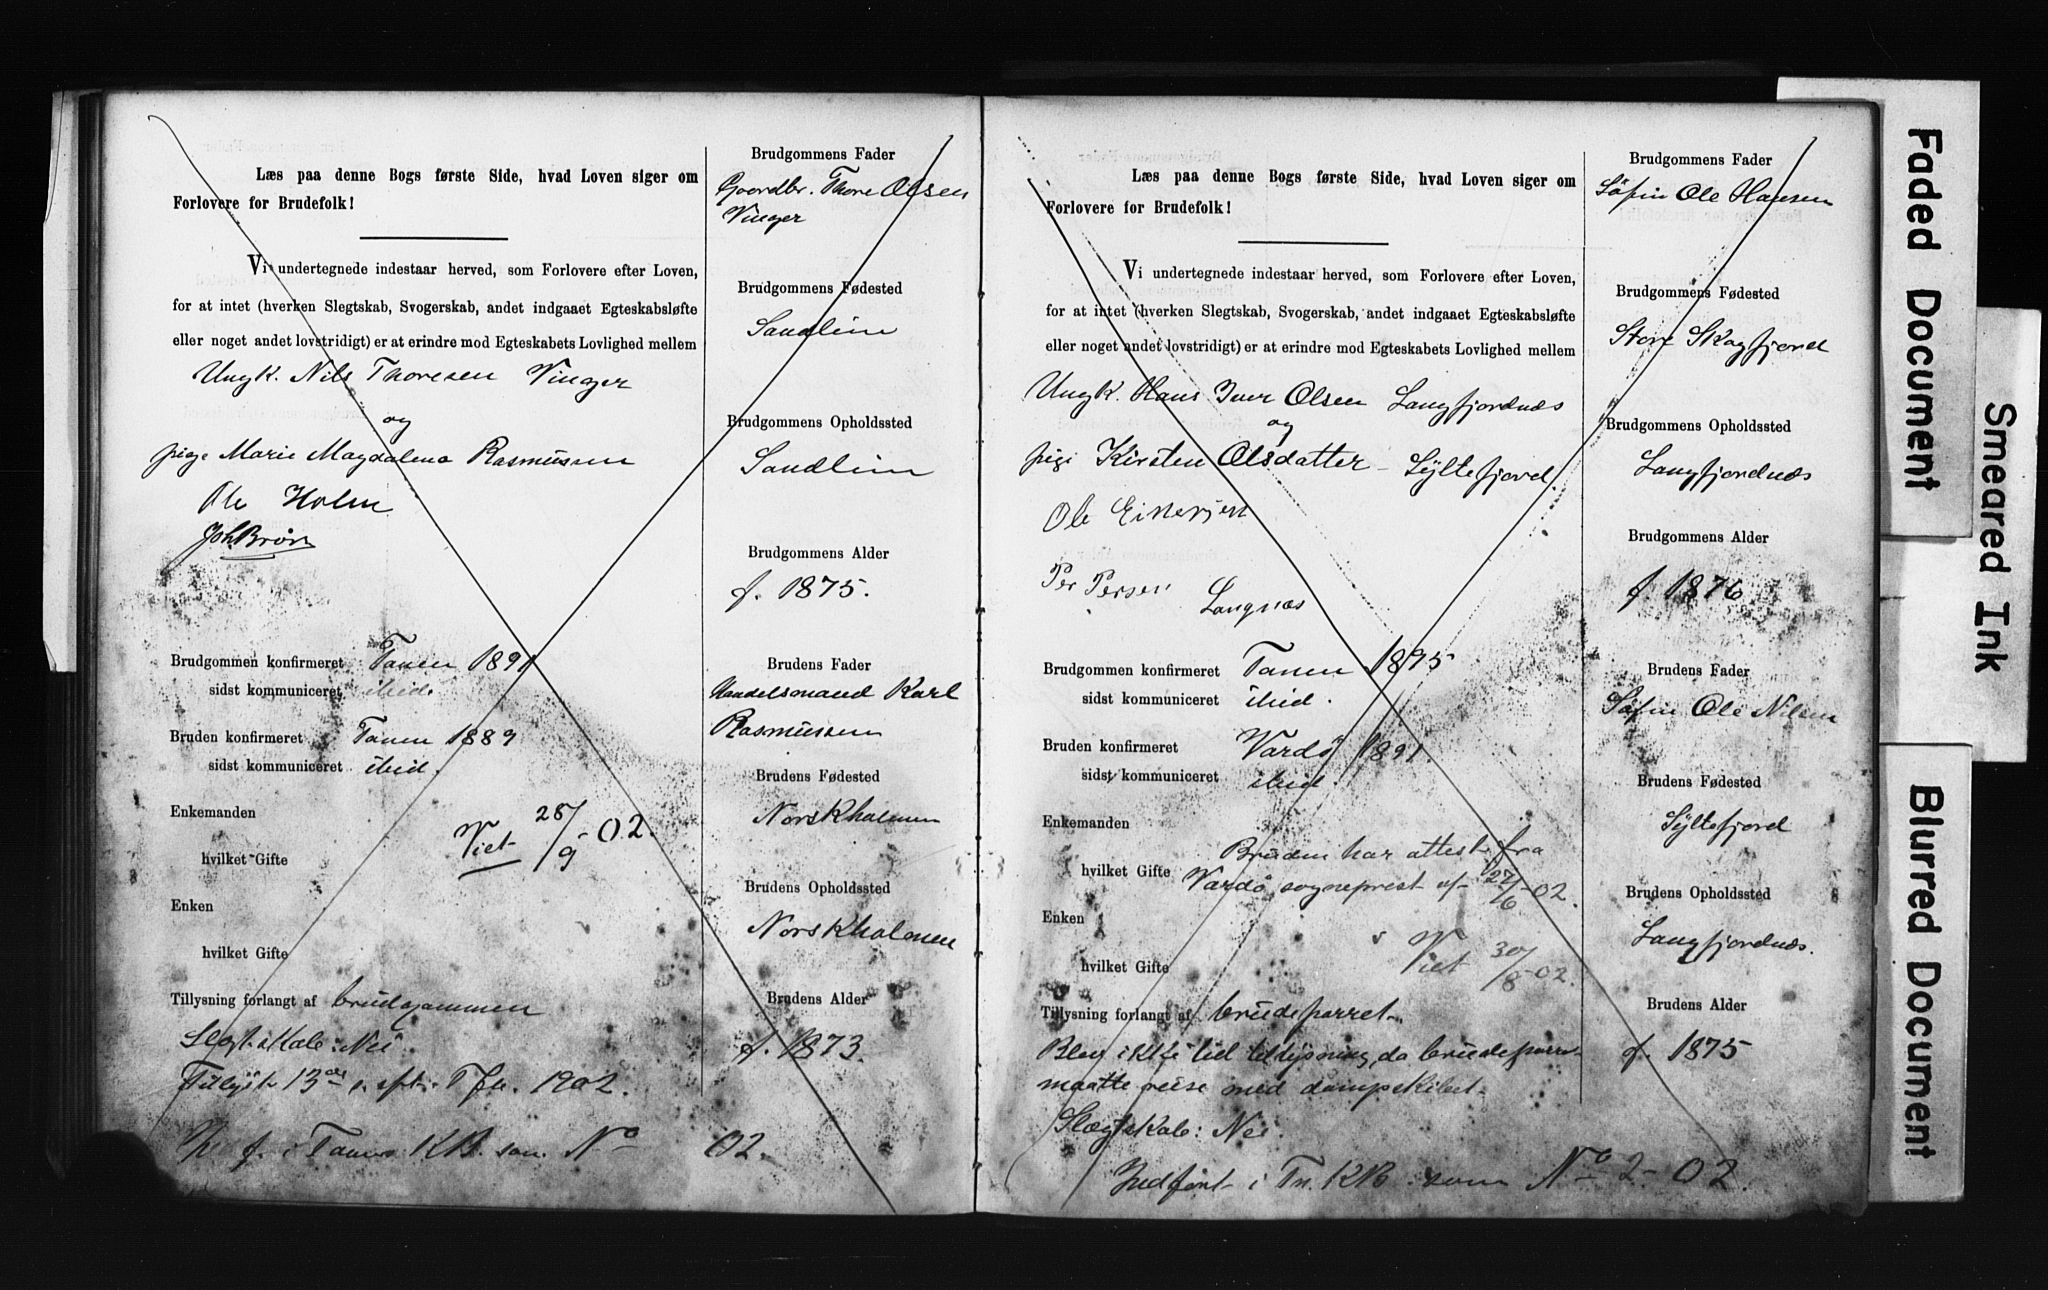 Læs paa denne Bogs første Side, hvad Loven siger om
Forlovere for Brudefolk!
Vi undertegnede indestaar herved, som Forlovere efter Loven,
for at intet (hverken Slegtskab, Svogerskab, andet indgaaet Egteskabsløfte
eller noget andet lovstridigt) er at erindre mod Egteskabets Lovlighed mellem
Ungk. Nils Thoresen Vinger
og
pige Marie Magdalena Rasmussen
Ole Holm
Joh Brøn
Brudgommen konfirmeret Tanen 1891
sidst kommuniceret ibid.
Bruden konfirmeret Tanen 1889
sidst kommuniceret ibid.
Enkemanden
Viet 28/9 - 02.
hvilket Gifte
Enken
hvilket Gifte
Tillysning forlangt af brudgommen
Slegtskab: Nei
Tillyst 13de s. eft. Tfh. 1902.
f. i Tanens KB. som No 02.
Brudgommens Fader
Gaardbr. Thore Olsen
Vinger
Brudgommens Fødested
Sandlein
Brudgommens Opholdssted
Sandlein
Brudgommens Alder
f. 1875.
Brudens Fader
Handelsmand Karl
Rasmussen
Brudens Fødested
Norskholmen
Brudens Opholdssted
Norskholmen
Brudens Alder
f. 1873.
Læs paa denne Bogs første Side, hvad Loven siger om
Forlovere for Brudefolk!
Vi undertegnede indestaar herved, som Forlovere efter Loven,
for at intet (hverken Slegtskab, Svogerskab, andet indgaaet Egteskabsløfte
eller noget andet lovstridigt) er at erindre mod Egteskabets Lovlighed mellem
Ungk. Hans Iver Olsen Langfjordnæs
og
pige Kirsten Olsdatter - Syltefjord.
Ole
Per Persen Langnæs
Brudgommen konfirmeret Tanen 1895
sidst kommuniceret ibid.
Bruden konfirmeret Vardø 1891
sidst kommuniceret ibid.
Enkemanden
Bruden har attest fra
hvilket Gifte Vardø sogneprest af 27/6 - 02.
Enken
Viet 30/8 - 02.
hvilket Gifte
Tillysning forlangt af brudeparret.
Blev ikke tid til lysning, da brudeparret
maatte reise med dampskibet.
Slægtskab: Nei.
Indført i Tn. KB. som No 2 - 02.
Brudgommens Fader
Søfin Ole Hansen
Brudgommens Fødested
Store Skogfjord
Brudgommens Opholdssted
Langfjordnæs
Brudgommens Alder
f. 1876
Brudens Fader
Søfin Ole Nilsen
Brudens Fødested
Syltefjord
Brudens Opholdssted
Langfjordnæs.
Brudens Alder
f. 1875
Faded Document
Smeared Ink
Blurred Document